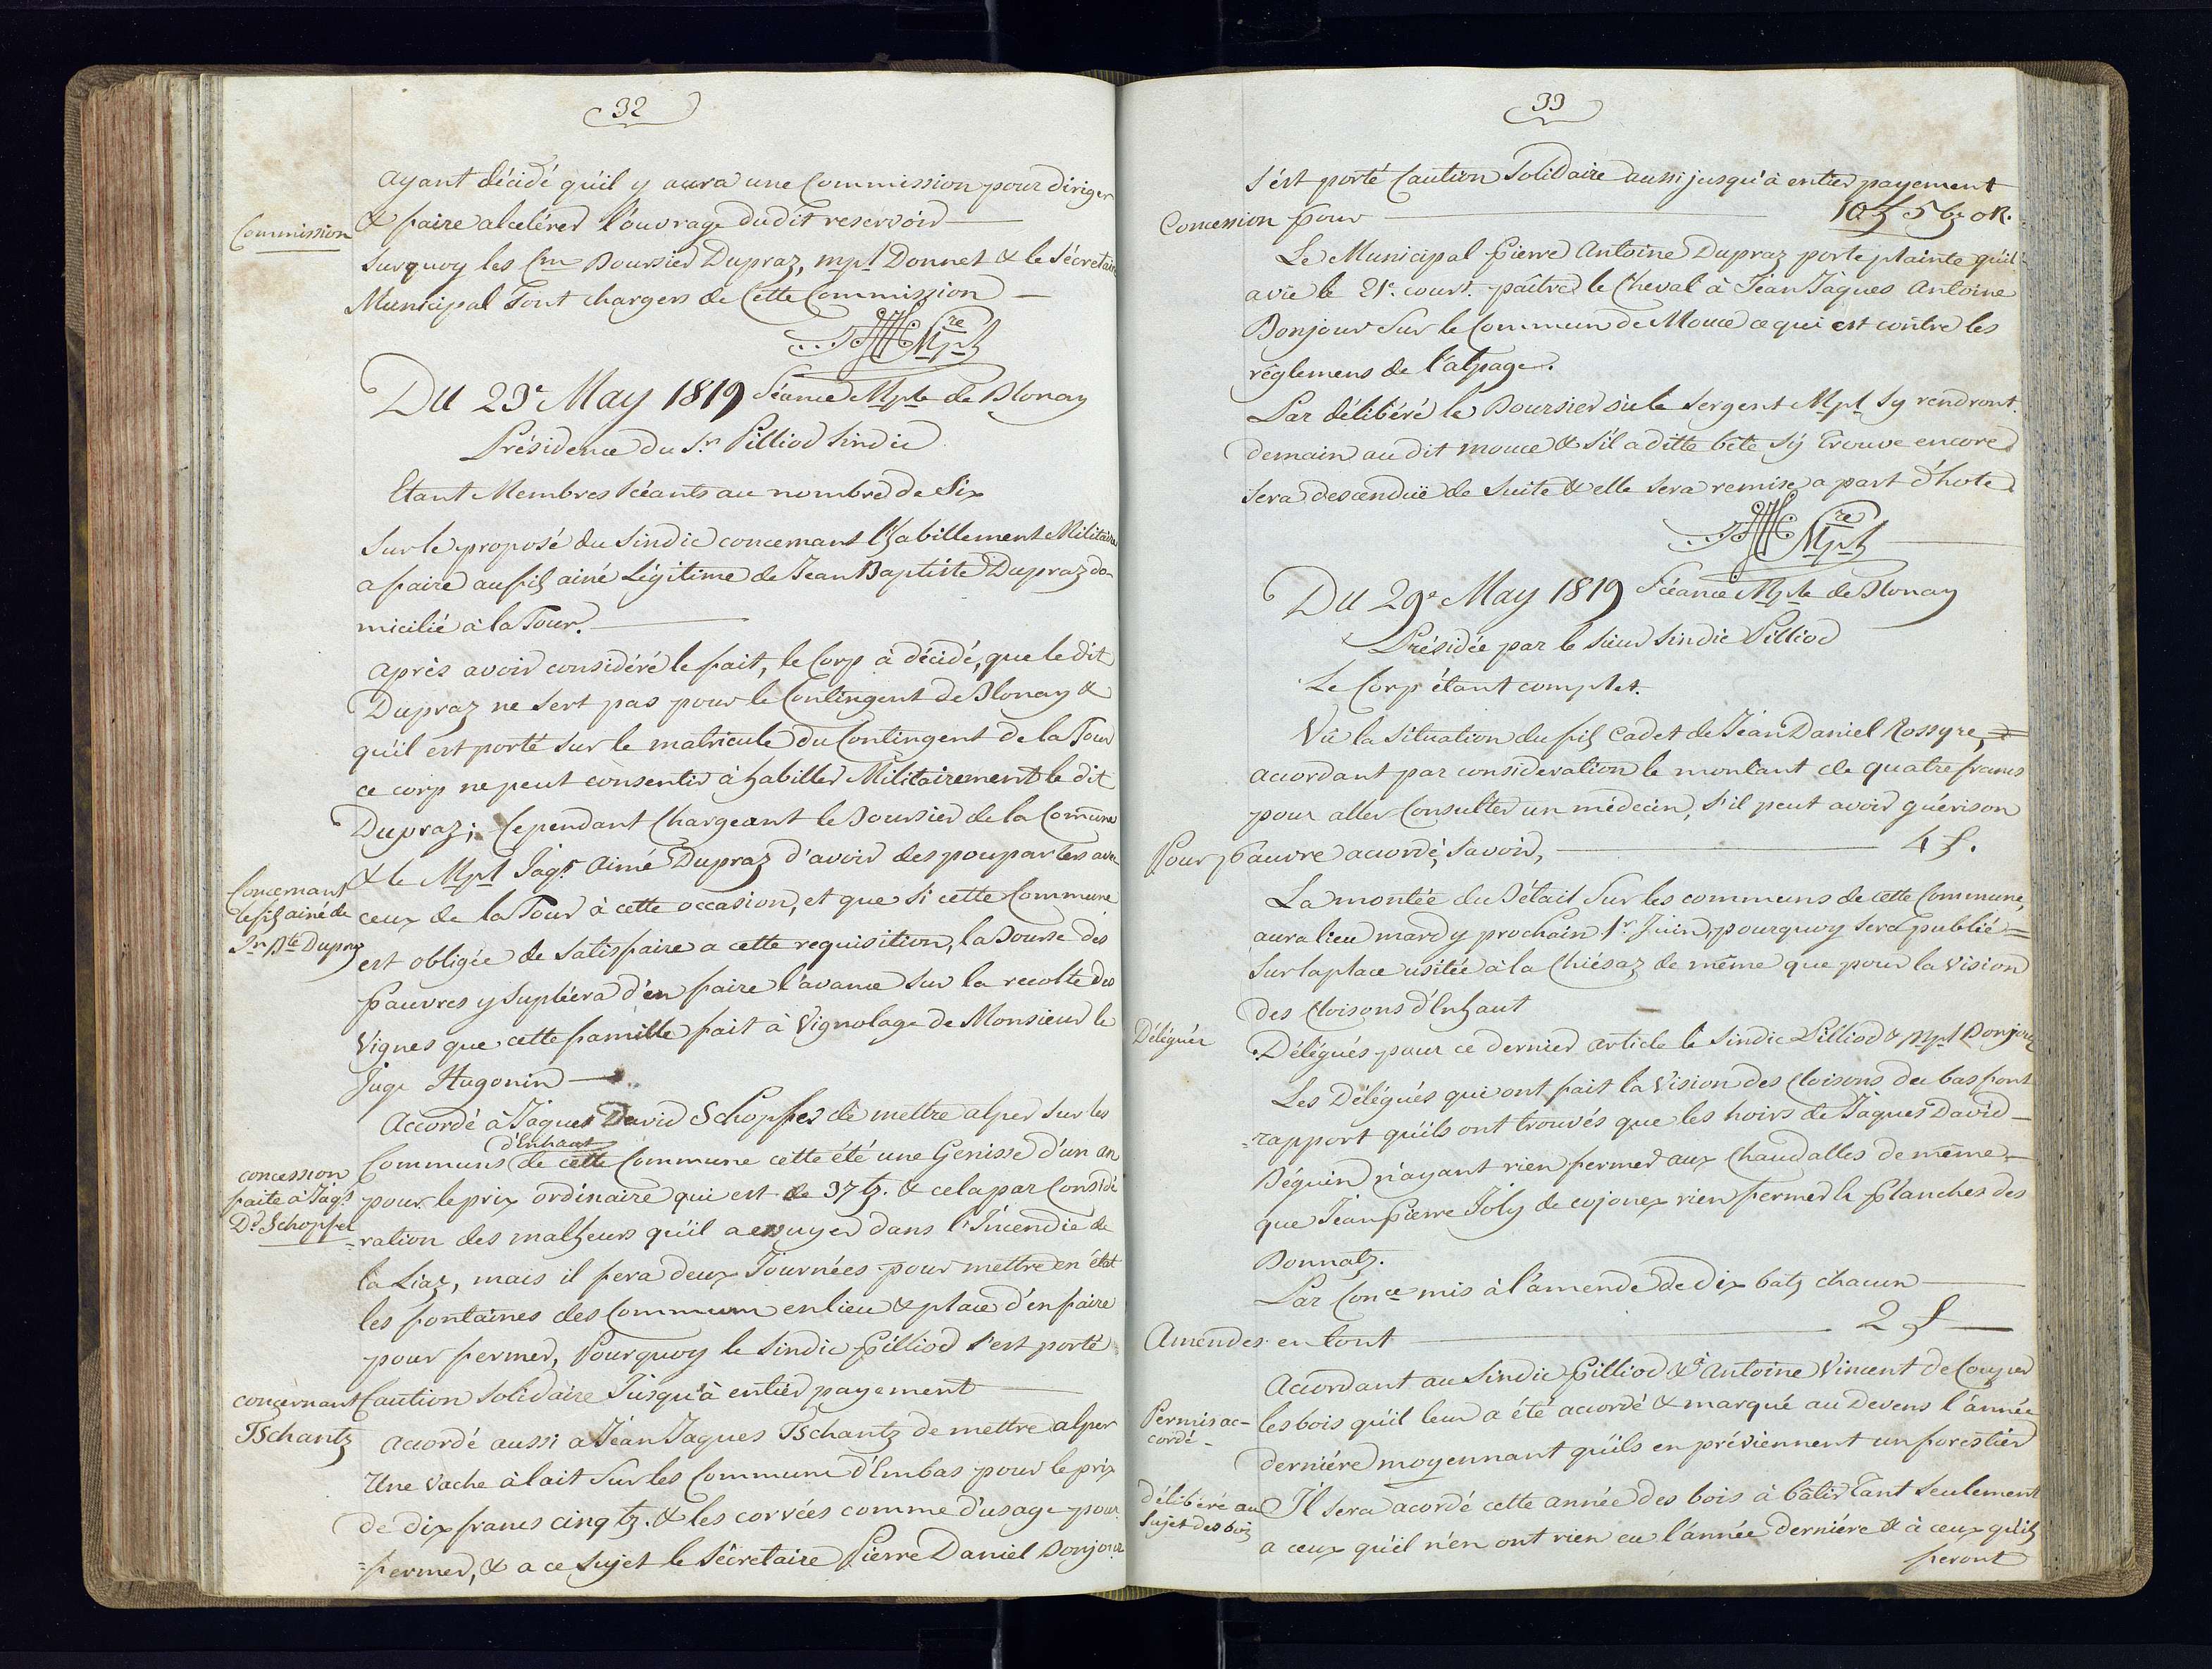 32
ayant décidé qu'il y aura une Commission pour diriger
Commission
& faire alcelérer l'ouvrage dudit reservoir
Surquoy les Boursier Dupraz, mpl Donnet & le Sécretaire
Municipal Sont chargers de Cette Commission
re
Mpl
Du 23e May 1819 Séance Mple de Blonay
Présidence du Sr. Pilliod Sindic
Etant Membres Séants au nombre de Six
Sur le proposé du Sindic concernant l'habillement Militaire
a faire au fils ainé Légitime de Jean Baptiste Dupraz do-
micilié à la Tour.
Après avoir considéré le fait, le Corp à décidé, que le dit
Dupraz ne sert pas pour le Contingent de Blonay &
qu'il est porté sur le matricule du Contingent de la Tour
ce corp ne peut consentir à habiller Militairement le dit
Dupraz; Cependant Chargeant le Boursier de la Comune
& le Mpl Jaqs Aimé Dupraz d'avoir des pouparlers avec
Concernant
le fils ainé de
Jn Bte Dupraz
ceux de la Tour à cette occasion, et que si cette Commune
est obligée de satisfaire a cette requisition, la Bourse des
pauvres y Supléera d'en faire l'avance sur la recolte des
Vignes que cette famille fait à Vignolage de Monsieur le
Juge Hugonin
Accordé à Jaques David Schopfer de mettre alper sur les
d'Enhaut
Communs de cette Commune cette été une Genisse d'un an
concession
faite à Jaqs
Dd Schopfer
pour le prix ordinaire qui est de 37 bz. & cela par Considé
=ration des malheurs qu'il a essuyer dans l'Incendie de
la Liaz, mais il fera deux Journées pour mettre en état
les fontaines des Commum en lieu & place d'en faire
pour fermer, Pourquoy le Sindic Pilliod s'est porté
Caution Solidaire Jusqu'à entier payement
concernant
Tschantz
Accordé aussi a Jean Jaques Tschantz de mettre alper
Une Vache à lait Sur les Commum d'Embas pour le prix
de dix francs cinq bz. & les corvées comme d'usage pour
=fermer, & a ce sujet le Sécretaire Pierre Daniel Bonjour
33
s'ést porté Caution Solidaire aussi jusqu'à entier payement
Concession pour 10 f 5 bz 0 R.
Le Municipal Pierre Antoine Dupraz porte plainte qu'il
a vïe le 21e. court. paître le Cheval à Jéan Jâques Antoine
Bonjour Sur le Commun de Mouce ce qui est contre les
règlemens de l'alpage.
Par délibéré le Boursier où le Sergent Mpl Sy rendront
demain au dit mouce & s'il a ditte bête s'y trouve encore
sera descendüe de Suite & elle sera remise a part d'hote.
re
Mpl
Du 29e May 1819 Séance Mple de Blonay
Présidée par le Sieur Sindic Pilliod
Le Corp étant complet.
Vû la situation du fils Cadet de Jéan Daniel Rossyre,
accordant par consideration le montant de quatre francs
pour aller Consulter un médecin, s'il peut avoir guérison
Pour pauvre accordé, savoir, 4 f.
La montée du Bétail Sur les communs de cette Commune,
aura lieu mardy prochain 1r. Juin, pourquoy sera publié =
sur la place usitée à la Chiésaz de même que pour la vision
des Cloisons d'Enhaut
Délégués
Délégués pour ce dernier article le Sindic Pilliod & Mpl Bonjour
Les Délégués qui ont fait la Vision des Cloisons du bas font
=rapport qu'ils ont trouvés que les hoirs de Jaques David
Béguin n'ayant rien fermer aux Chaudalles de même
que Jéan Pierre Joly de cojonex rien fermer le Planches des
Bonnatz.
Par Conce mis à l'amende de dix batz chacun
Amendes en tout 2 f
Accordant au Sindic Pilliod & à Antoine Vincent de Couper
Permis ac-
cordé-
les bois qu'il leur a été accordé & marqué au Devens l'année
derniére moyennant qu'ils en préviennent un forestier
délibéré au
sujet des bois
Il sera acordé cette année des bois à bâtir tant seulement
a ceux qu'il n'en ont rien eu l'année derniére & à ceux qu'ils
feront